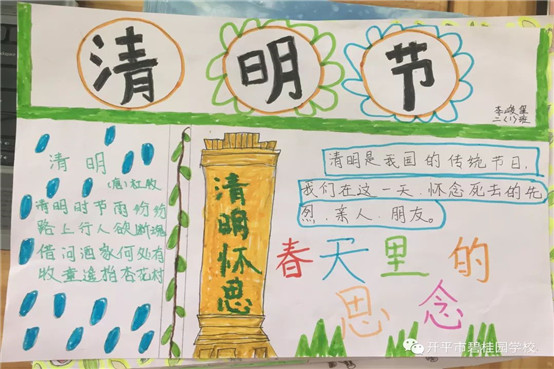 清明节
李峻
二(1)班
清明
(唐)杜牧
清明时节雨纷纷
路上行人欲断魂
借问酒家何处有
牧童遥指杏花村
清明怀思
清明是我国的传统节日,
我们在这一天,怀念死去的先
烈、亲人、朋友。
春天里的
思念
开平市碧桂园学校